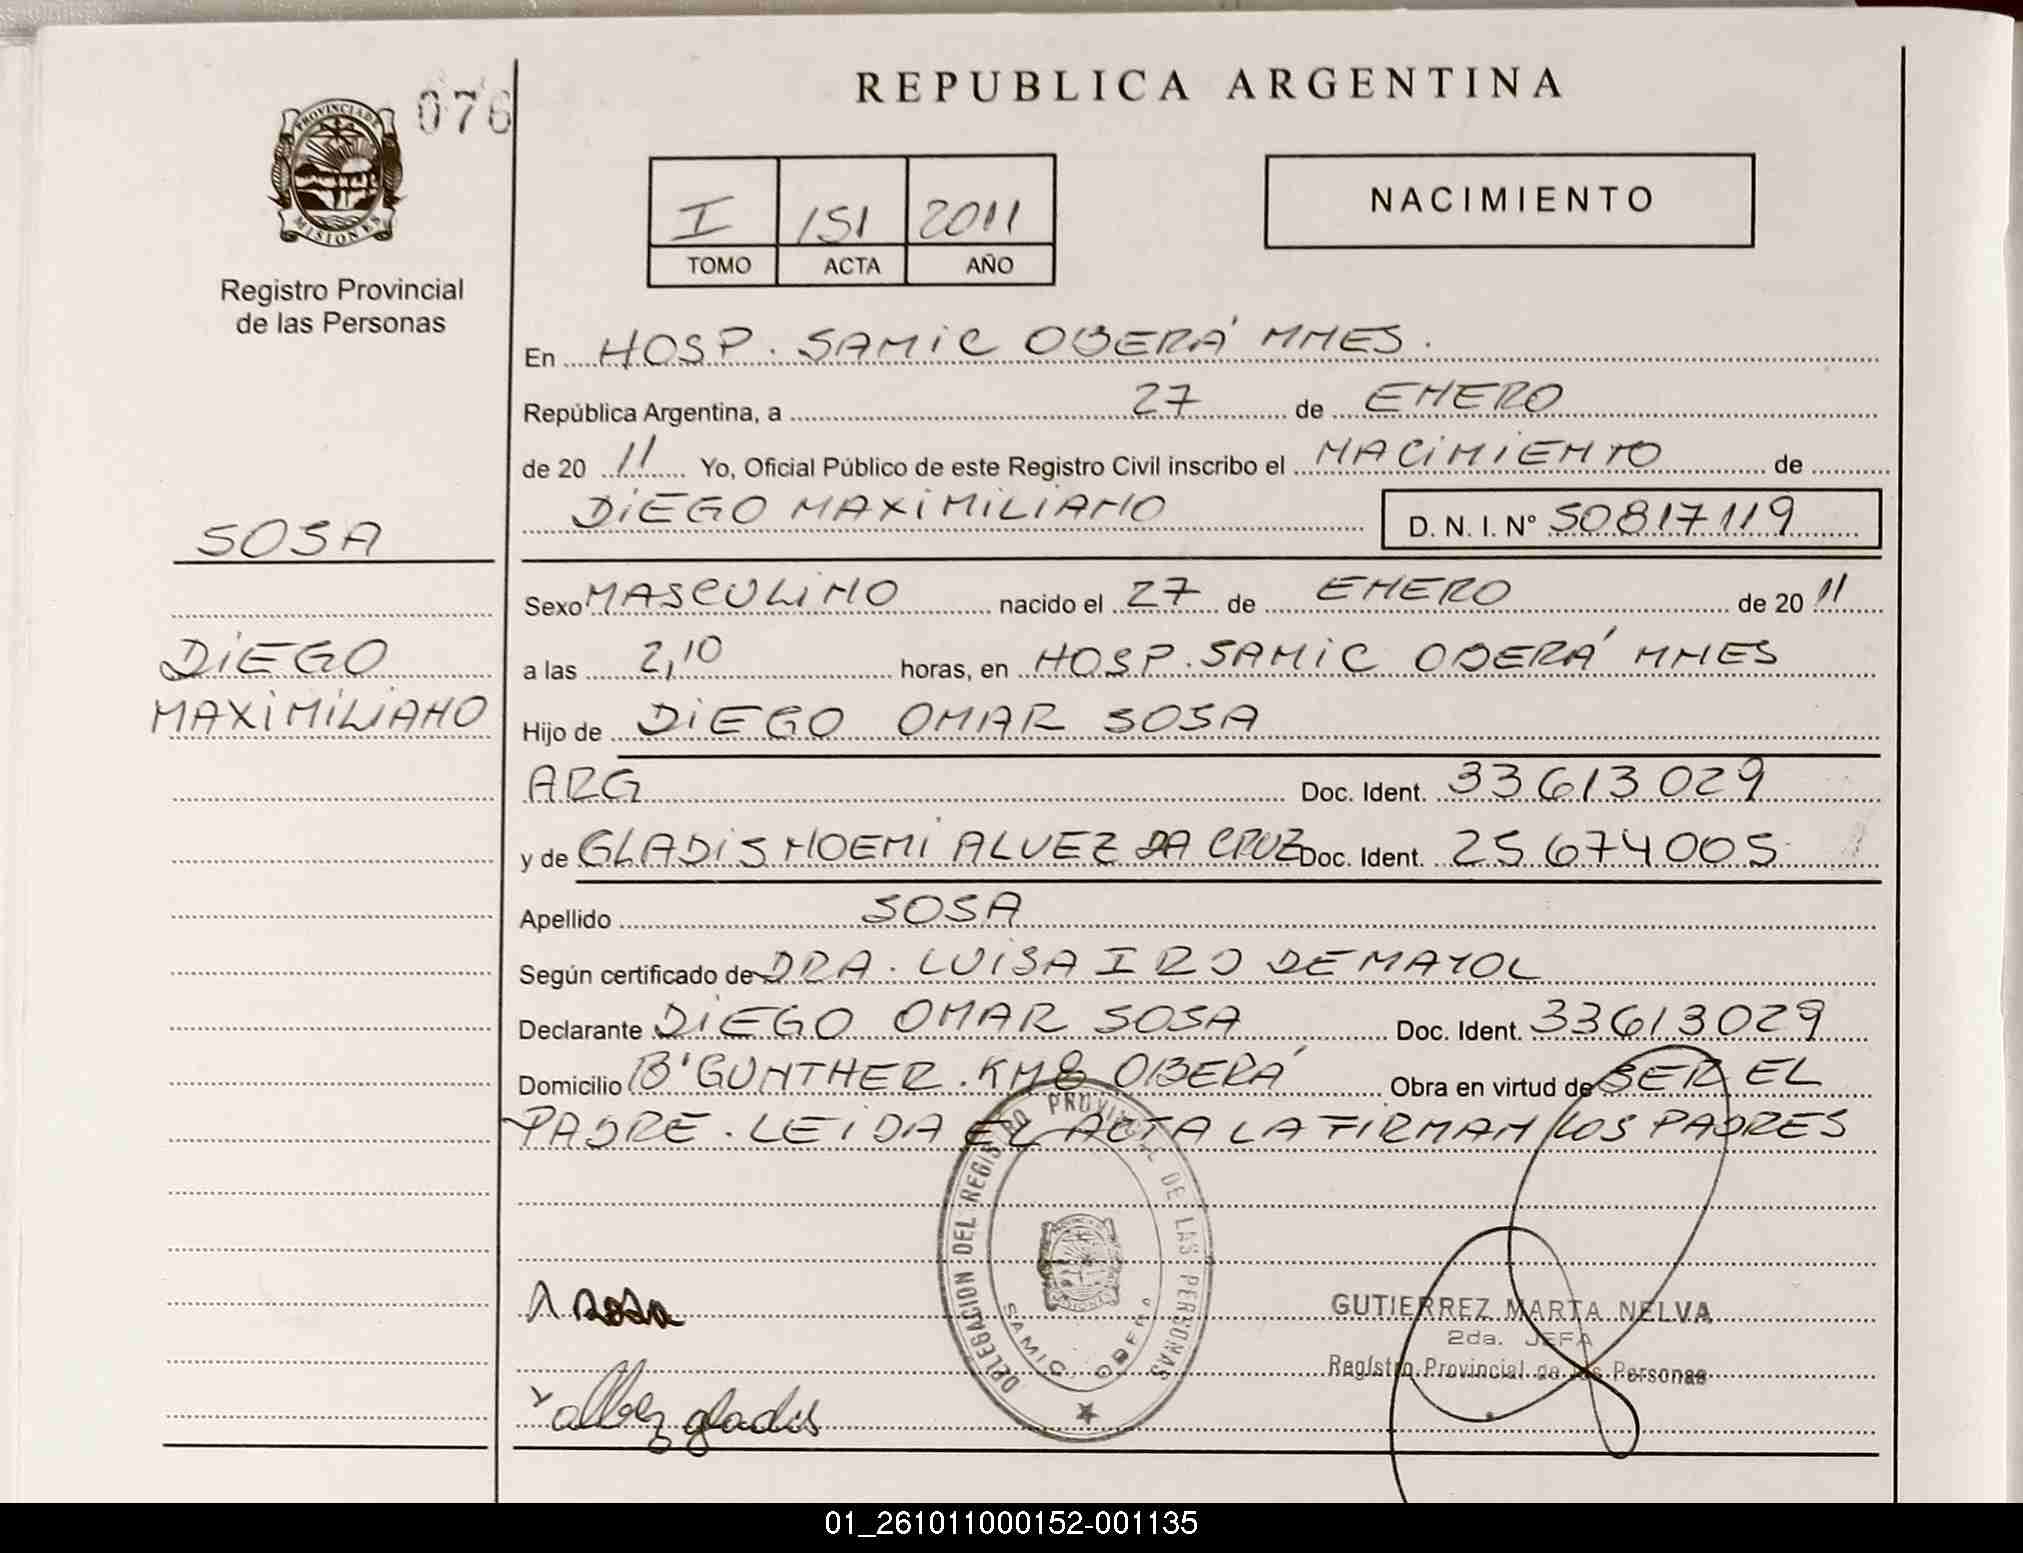 076
REPUBLICA ARGENTINA
PROVINCIA DE
MISIONES
Registro Provincial
de las Personas
I 151 2011
TOMO ACTA AÑO
NACIMIENTO
En HOSP. SAMIC OBERÁ MNES.
República Argentina, a 27 de ENERO
de 20 11 Yo, Oficial Público de este Registro Civil inscribo el NACIMIENTO de
DIEGO MAXIMILIANO D. N. I. N° 50817119
SOSA
DIEGO
MAXIMILIANO
Sexo MASCULINO nacido el 27 de ENERO de 20 11
a las 2,10 horas, en HOSP. SAMIC OBERÁ MNES
Hijo de DIEGO OMAR SOSA
ARG Doc. Ident. 33613029
y de GLADIS NOEMI ALVEZ DA CRUZ Doc. Ident. 25674005
Apellido SOSA
Según certificado de DRA. LUISA IRO DEMAYOL
Declarante DIEGO OMAR SOSA Doc. Ident. 33613029
Domicilio B' GUNTHER. KM8 OBERÁ Obra en virtud de SER EL
PADRE. LEIDA EL ACTA LA FIRMAN LOS PADRES
DELEGACION DEL REGISTRO PROVINCIAL DE LAS PERSONAS
SAMIC OBERA
Sosa
GUTIERREZ MARTA NELVA
2da. JEFA
Registro Provincial de las Personas
gladis
01_261011000152-001135